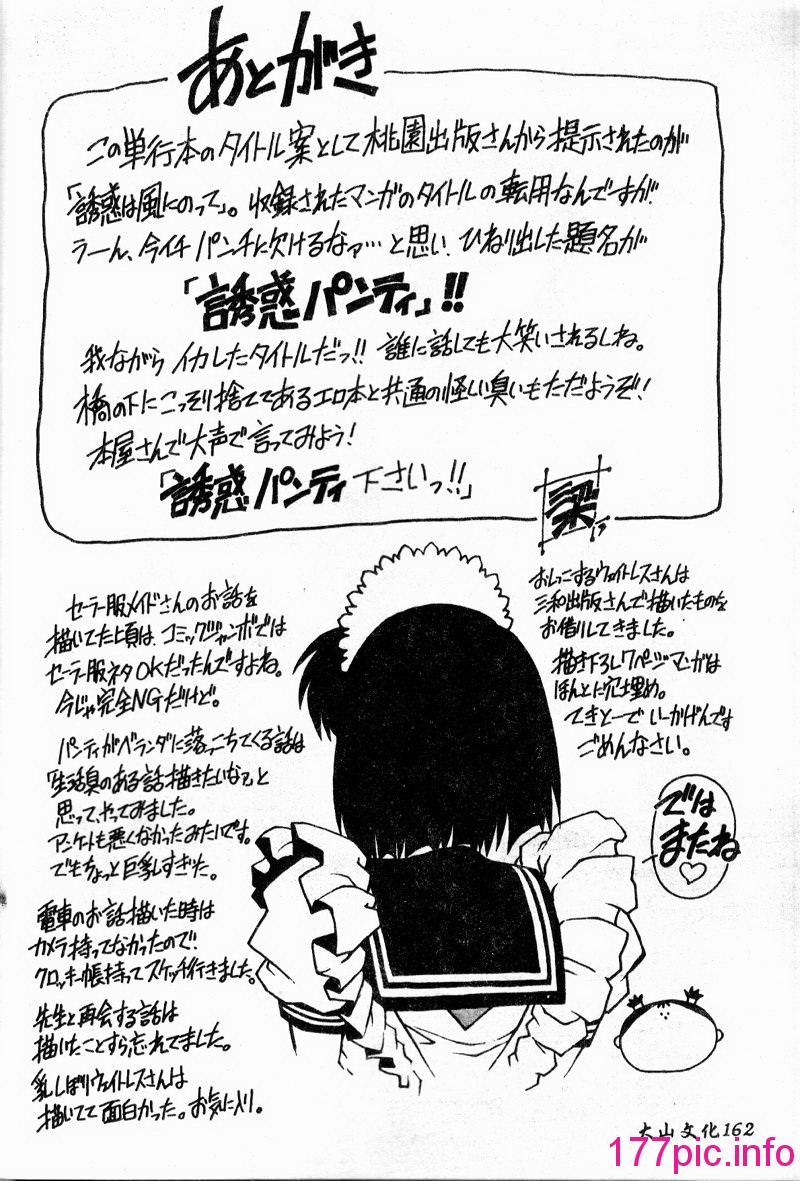 あとがき
この単行本のタイトル案として桃園出版さんから提示されたのが
「誘惑は風にのって」。収録されたマンガのタイトルの転用なんですが
うーん、今イチパンチに欠けるなァ…と思い、ひねり出した題名が
「誘惑パンティ」!!
我ながらイカしたタイトルだっ!! 誰に話しても大笑いされるしね。
橋の下にこっそり捨ててあるエロ本と共通の怪しい臭いもただようぞ!
本屋さんで大声で言ってみよう!
「誘惑パンティ下さいっ!!」
セーラー服メイドさんのお話を
描いてた頃は、コミックジャンボでは
セーラー服ネタOKだったんですよね。
今じゃ完全NGだけど。
パンティがベランダに落っこちてくる話は
「生活臭のある話描きたいなァ」と
思って、やってみました。
アンケートも悪くなかったみたいです。
でもちょっと巨乳すぎた。
電車のお話描いた時は
カメラ持ってなかったので
クロッキー帳持ってスケッチ行きました。
先生と再会する話は
描いたことすら忘れてました。
乳しぼりウェイトレスさんは
描いてて面白かった。お気に入り。
おしっこするウェイトレスさんは
三和出版さんで描いたものを
お借りしてきました。
描き下ろし7ページマンガは
ほんとに穴埋め。
てきとーでいーかげんです
ごめんなさい。
では
またね
♡
大山文化162
177pic.info